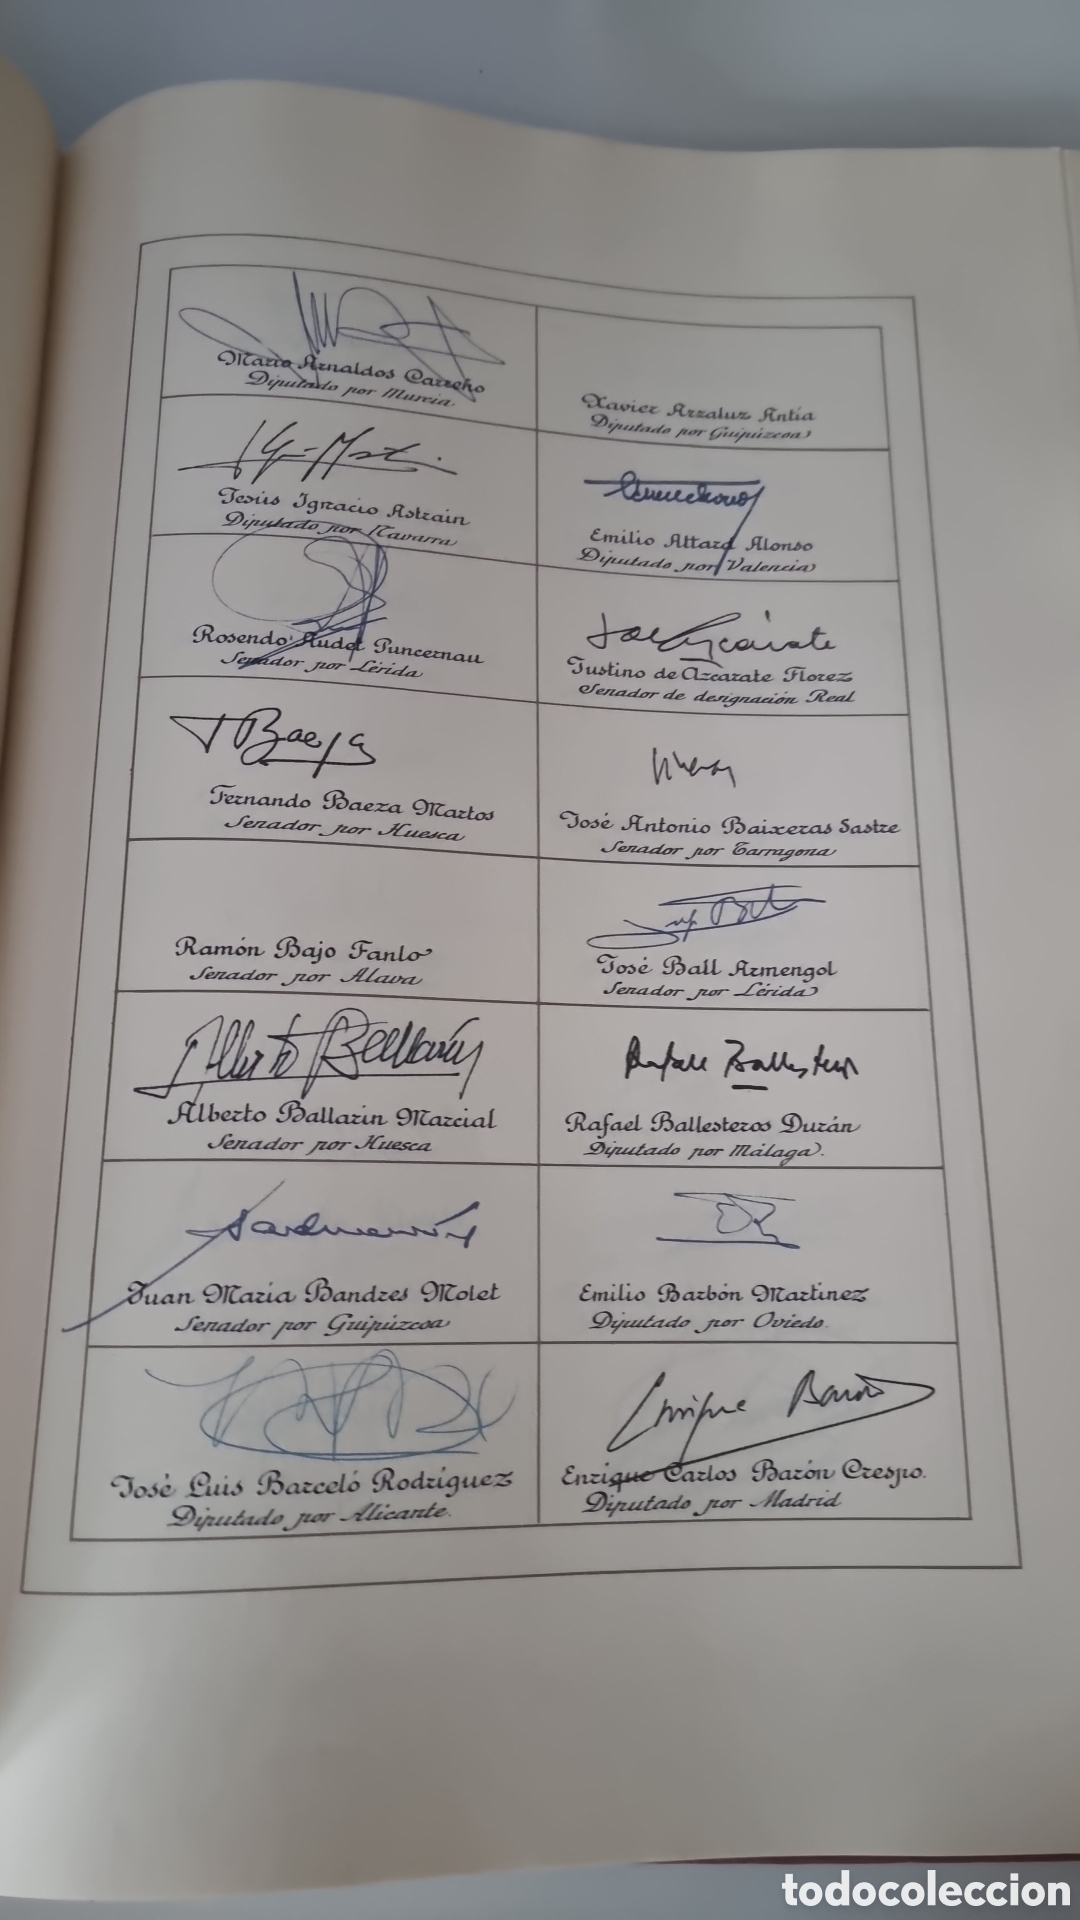 Mario Arnaldos Carreño
Diputado por Murcia.
Xavier Arzaluz Antia
Diputado por Guipúzcoa
Jesús Ignacio Astrain
Diputado por Navarra
Emilio Attard Alonso
Diputado por Valencia
Rosendo Audet Puncernau
Senador por Lérida
Justino de Azcarate Florez
Senador de designación Real
Baeza
Fernando Baeza Martos
Senador por Huesca
José Antonio Baixeras Sastre
Senador por Tarragona
Ramón Bajo Fanlo
Senador por Alava
José Ball Armengol
Senador por Lérida
Alberto Ballarín
Alberto Ballarin Marcial
Senador por Huesca
Rafael Ballesteros
Rafael Ballesteros Durán
Diputado por Málaga.
Juan Maria Bandres Molet
Senador por Guipúzcoa
Emilio Barbón Martinez
Diputado por Oviedo.
José Luis Barceló Rodríguez
Diputado por Alicante.
Enrique Barón
Enrique Carlos Barón Crespo.
Diputado por Madrid
todocoleccion